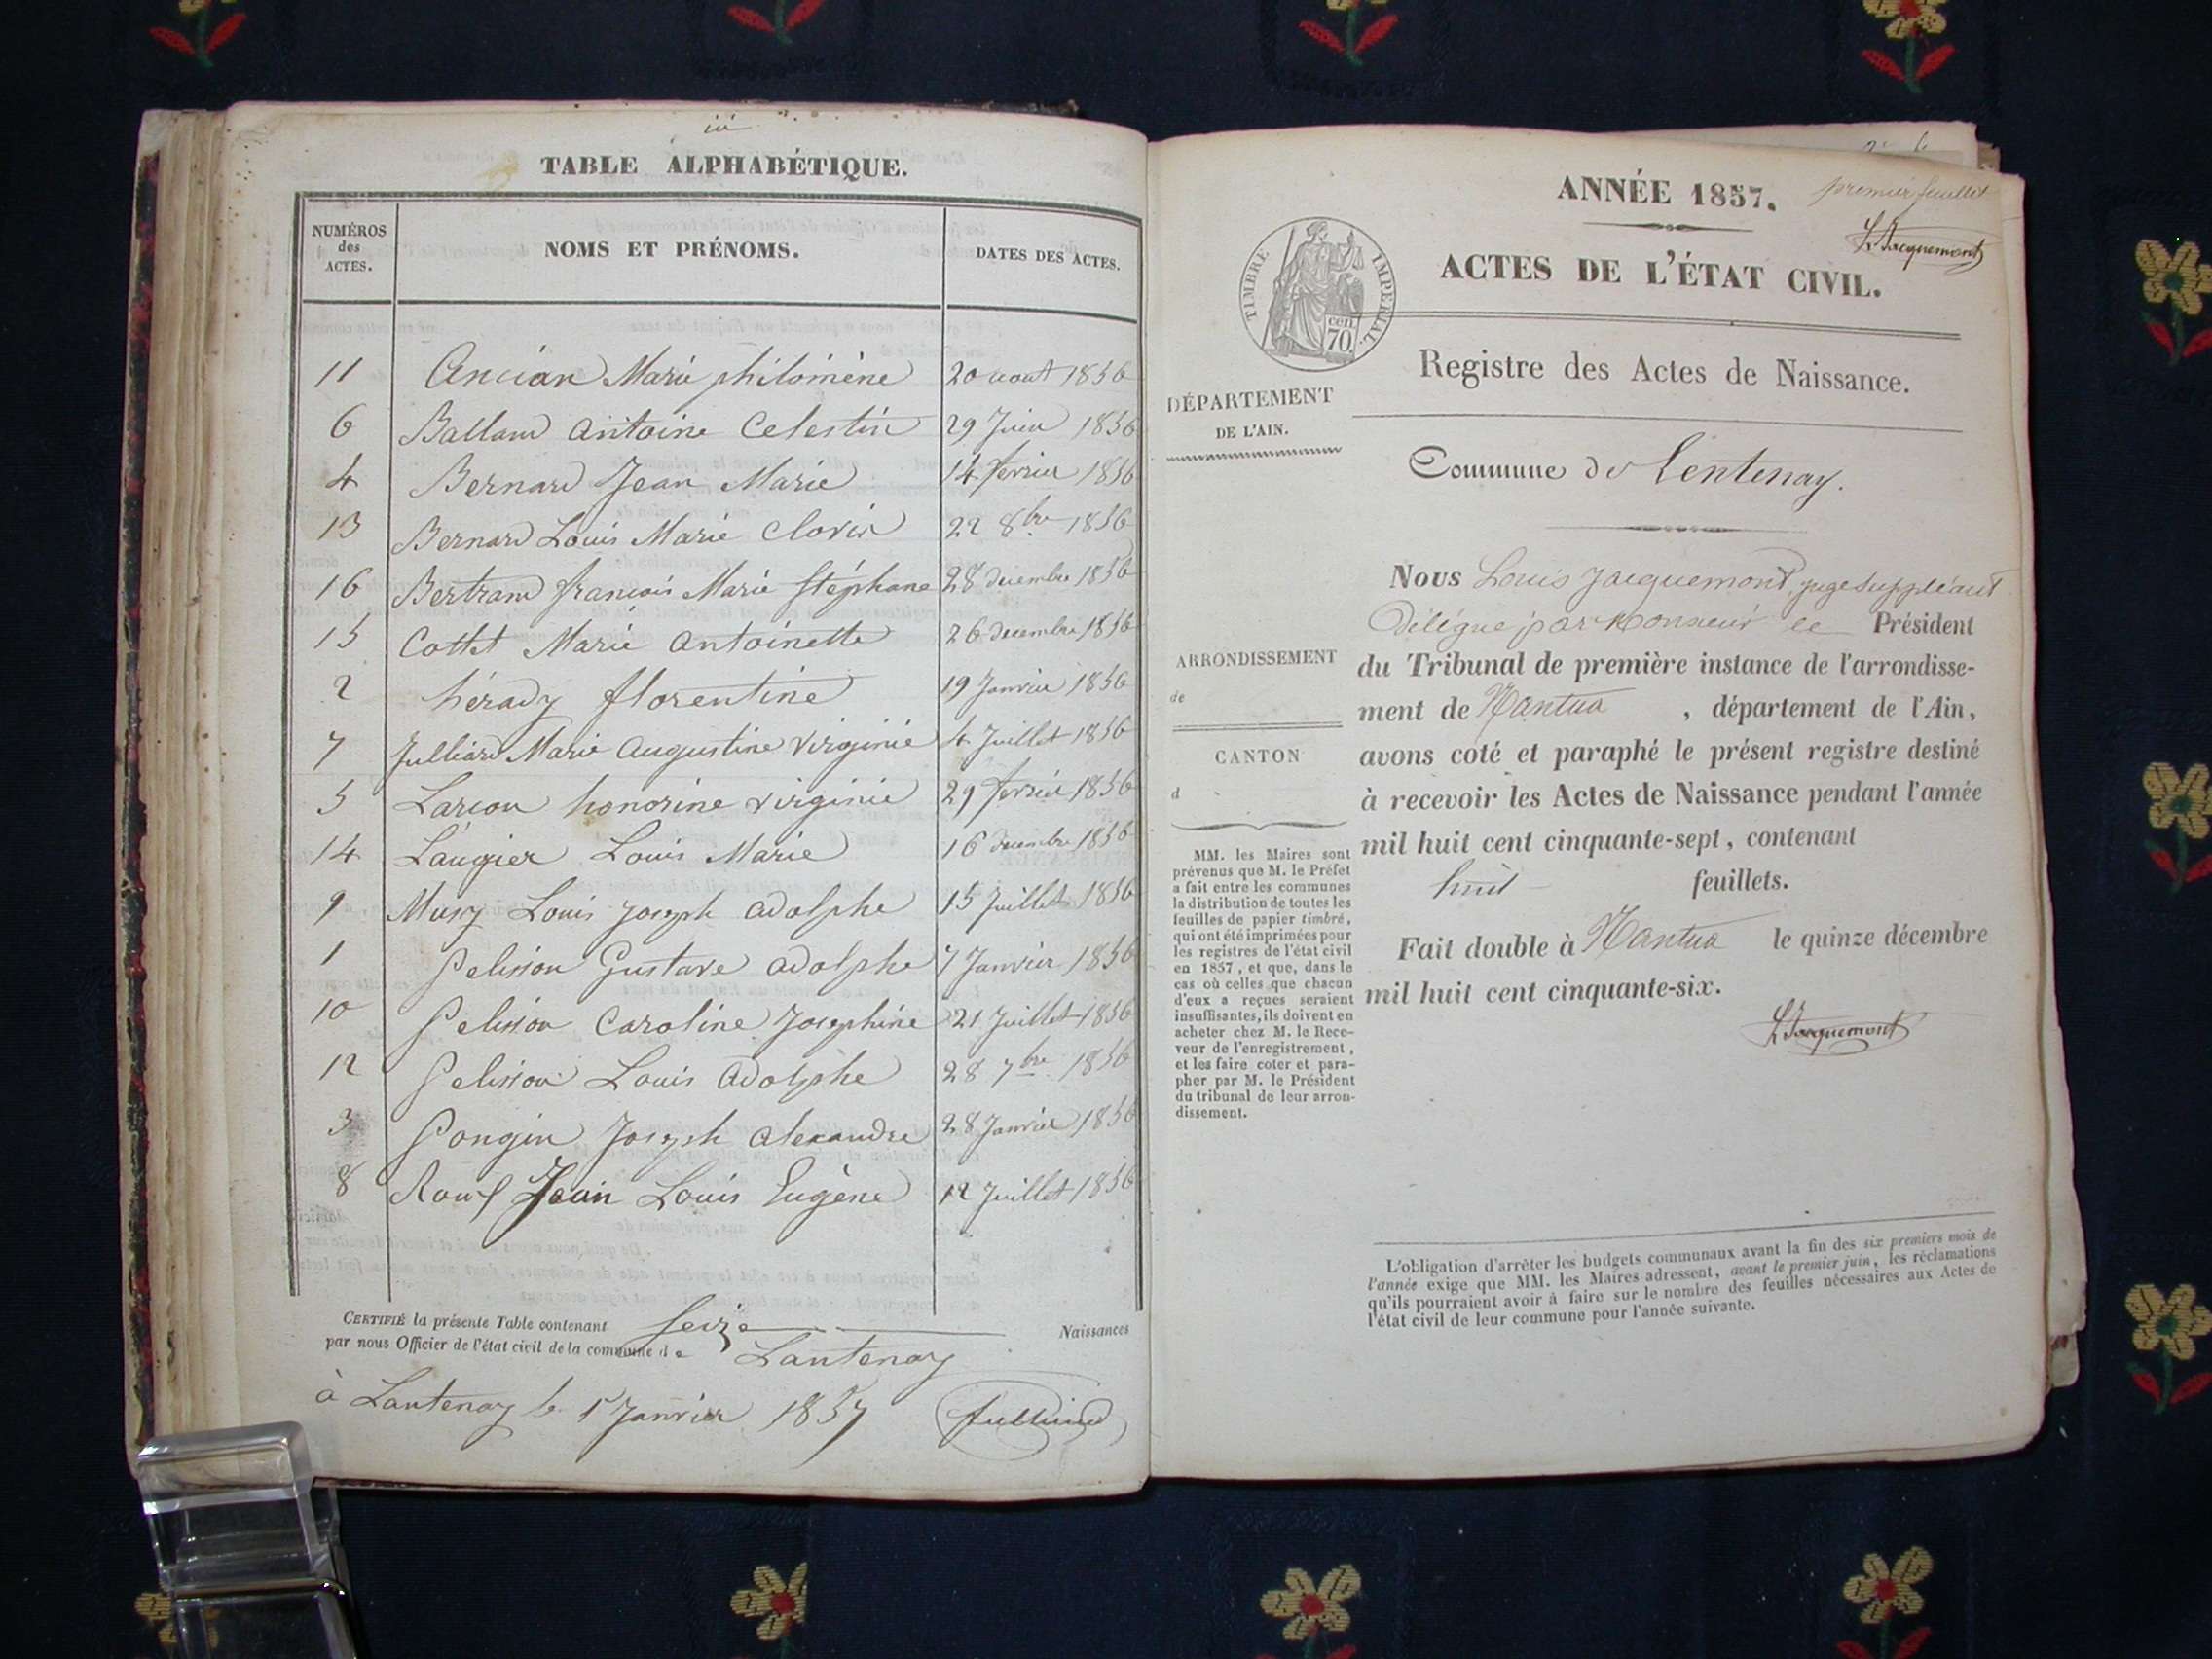 TABLE ALPHABÉTIQUE.
NUMÉROS des ACTES. NOMS ET PRÉNOMS. DATES DES ACTES.
11 Ancian Marie philomène 20 aout 1856
6 Balland Antoine Celestin 29 Juin 1856
4 Bernard Jean Marie 14 fevrier 1856
13 Bernard Louis Marie Clovis 22 8bre 1856
16 Bertrand francois Marie Stéphane 28 decembre 1856
15 Cottet Marie Antoinette 26 decembre 1856
2 hérady florentine 19 Janvier 1856
7 Julliard Marie Augustine Virginie 4 Juillet 1856
5 Larcon honorine Virginie 29 fevrier 1856
14 Laugier Louis Marie 16 decembre 1856
9 Musy Louis Joseph Adolphe 15 Juillet 1856
1 Pelisson Gustave Adolphe 7 Janvier 1856
10 Pelisson Caroline Josephine 21 Juillet 1856
12 Pelisson Louis Adolphe 28 7bre 1856
3 Pongin Joseph Alexandre 28 Janvier 1856
8 Jean Louis Eugène 12 Juillet 1856
CERTIFIÉ la présente Table contenant Seize Naissances
par nous Officier de l'état civil de la commune de Lantenay
à Lantenay le 1r Janvier 1857
Julliard
premier feuillet
L. Jacquemont
ANNÉE 1857.
ACTES DE L'ÉTAT CIVIL.
TIMBRE IMPÉRIAL.
cen.
70
Registre des Actes de Naissance.
DÉPARTEMENT
DE L'AIN.
Commune de Lentenay.
Nous Louis Jacquemont, juge suppléant
Délégué par Monsieur le Président
du Tribunal de première instance de l'arrondisse-
ment de Nantua , département de l'Ain,
avons coté et paraphé le présent registre destiné
à recevoir les Actes de Naissance pendant l'année
mil huit cent cinquante-sept, contenant
huit feuillets.
Fait double à Nantua le quinze décembre
mil huit cent cinquante-six.
L. Jacquemont
ARRONDISSEMENT
de
CANTON
d
MM. les Maires sont
prévenus que M. le Préfet
a fait entre les communes
la distribution de toutes les
feuilles de papier timbré,
qui ont été imprimées pour
les registres de l'état civil
en 1857, et que, dans le
cas où celles que chacun
d'eux a reçues seraient
insuffisantes, ils doivent en
acheter chez M. le Rece-
veur de l'enregistrement,
et les faire coter et para-
pher par M. le Président
du tribunal de leur arron-
dissement.
L'obligation d'arrêter les budgets communaux avant la fin des six premiers mois de
l'année exige que MM. les Maires adressent, avant le premier juin, les réclamations
qu'ils pourraient avoir à faire sur le nombre des feuilles nécessaires aux Actes de
l'état civil de leur commune pour l'année suivante.